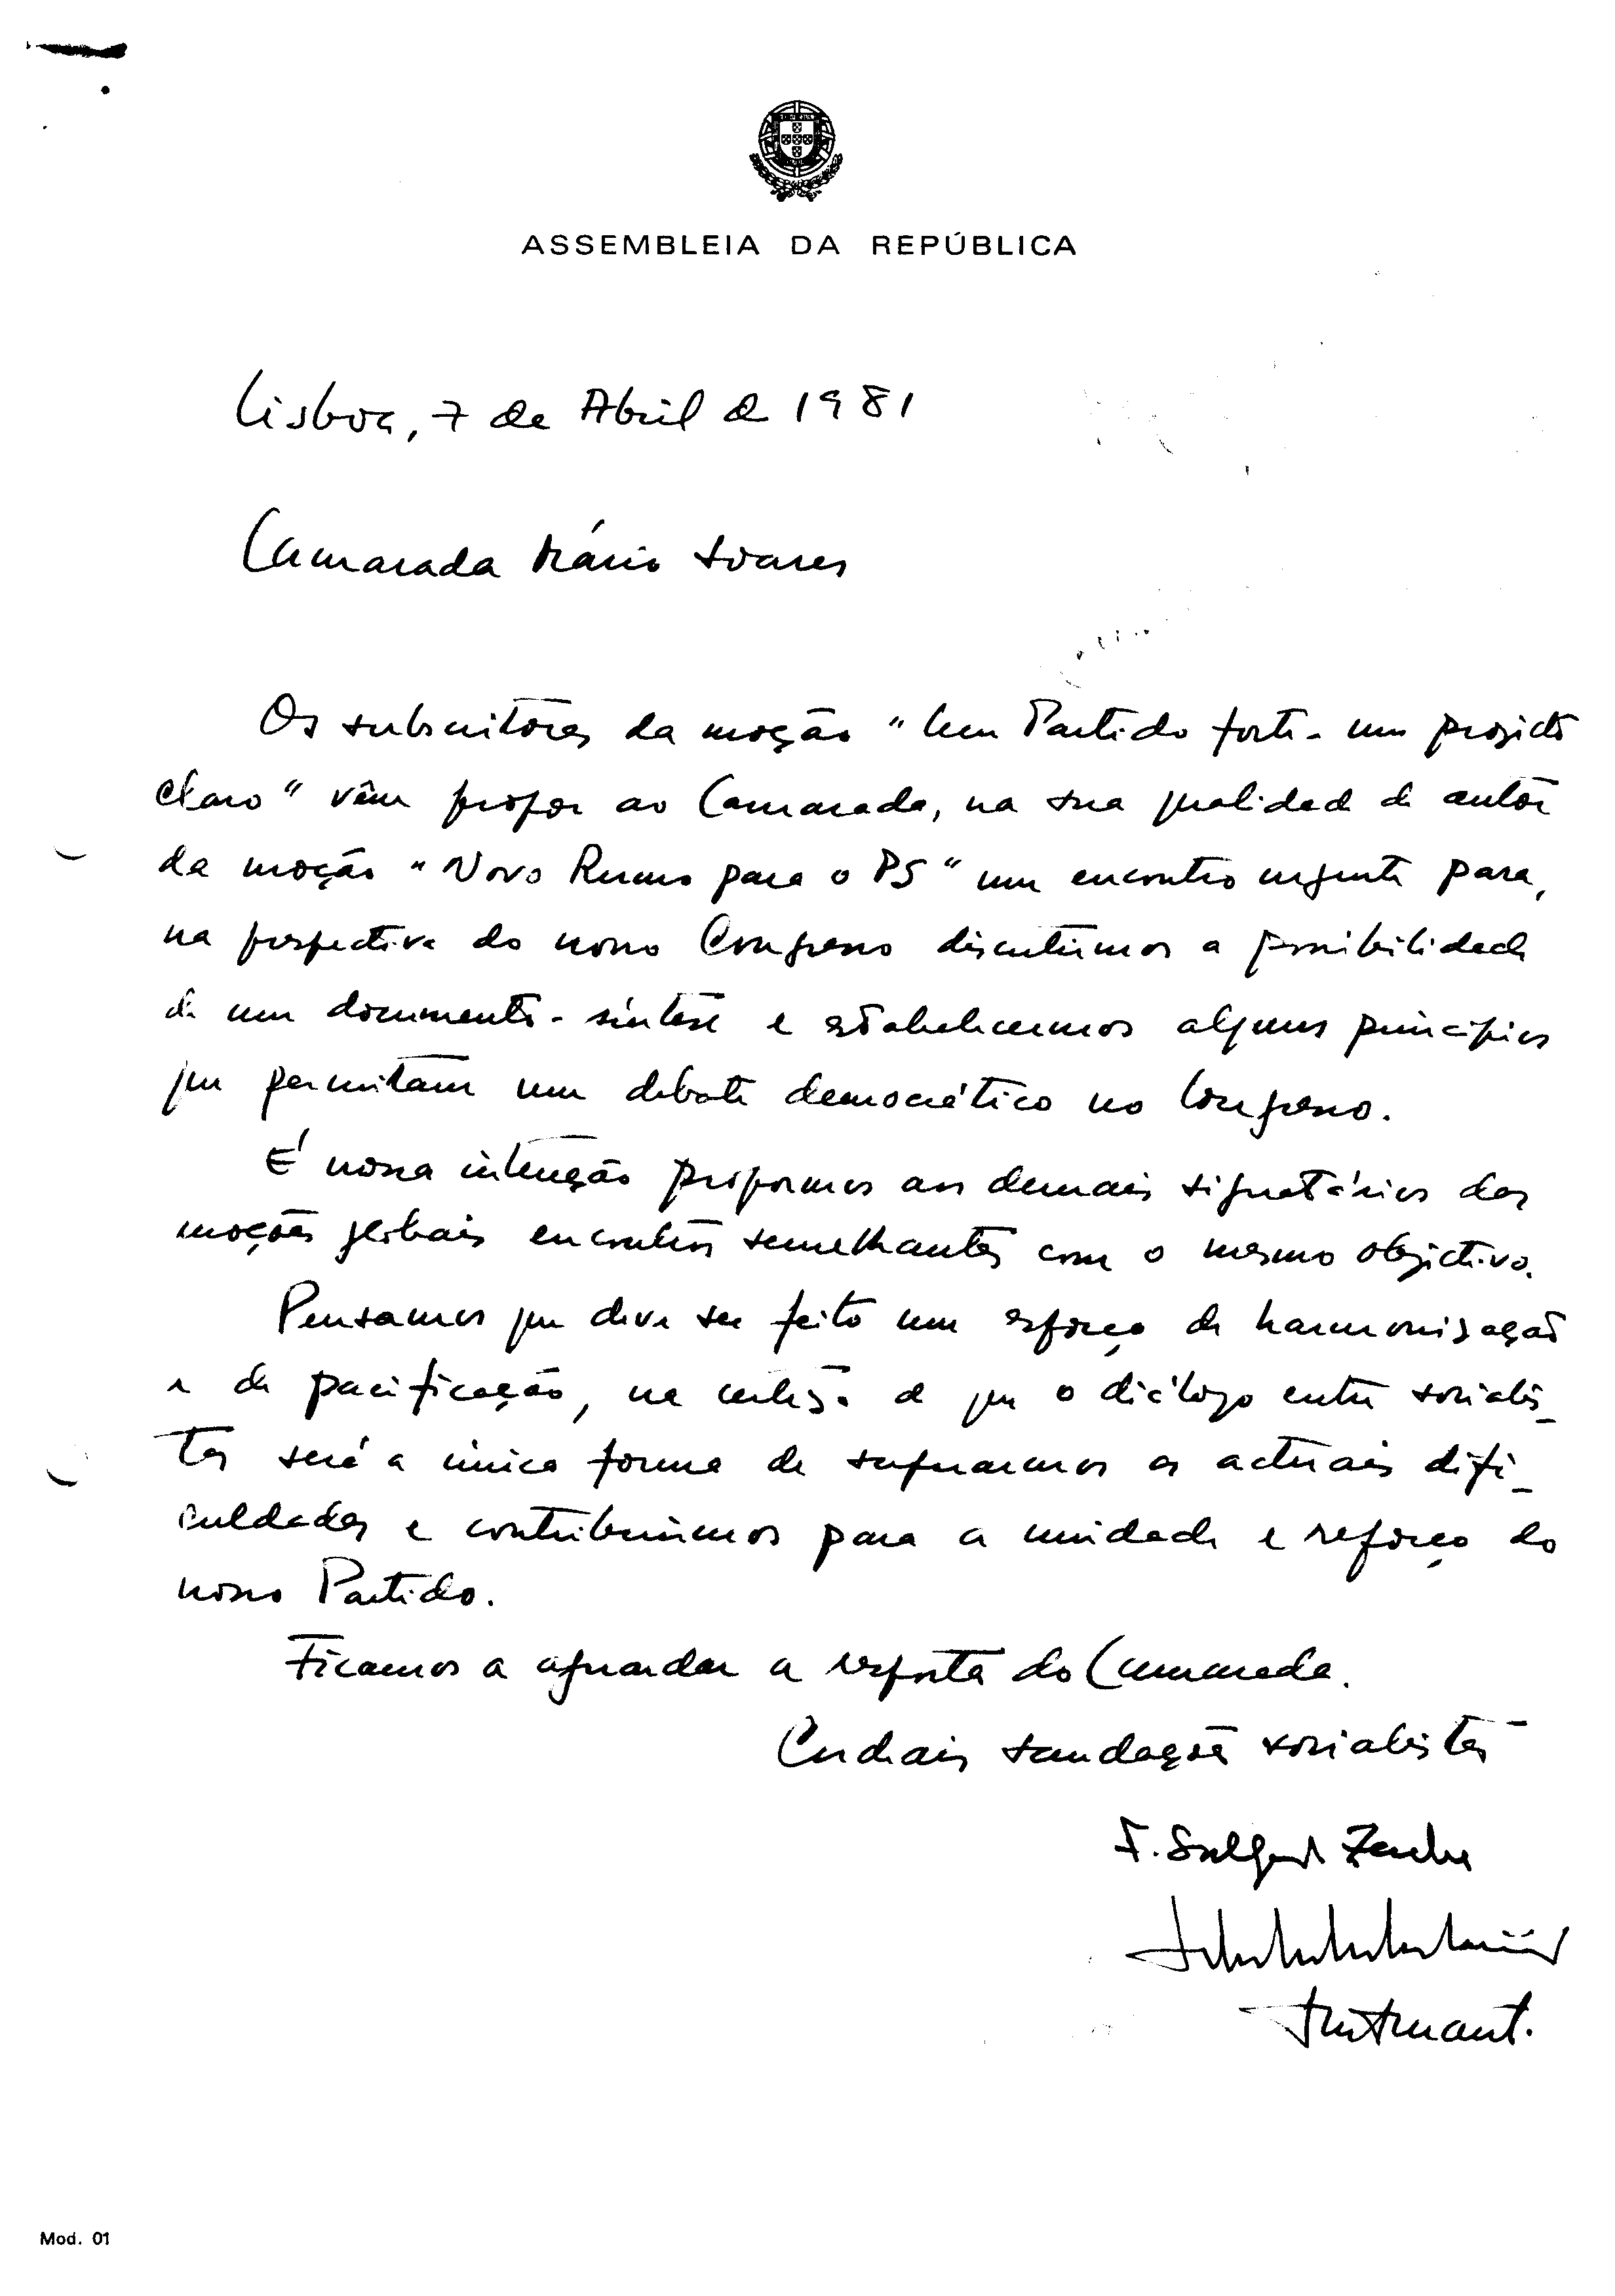 ASSEMBLEIA DA REPÚBLICA
Lisboa, 7 de Abril de 1981
Camarada Mário Soares
Os subscritores da moção "Um Partido forte - um projecto
claro" vêm propor ao Camarada, na sua qualidade de autor
da moção "Novo Rumo para o PS" um encontro urgente para,
na perspectiva do nosso Congresso discutirmos a possibilidade
de um documento-síntese e estabelecermos alguns princípios
que permitam um debate democrático no Congresso.
É nossa intenção propormos aos demais signatários das
moções globais encontros semelhantes com o mesmo objectivo.
Pensamos que deve ser feito um esforço de harmonização
e de pacificação, na certeza de que o diálogo entre socialis-
tas será a única forma de superarmos as actuais difi-
culdades e contribuirmos para a unidade e reforço do
nosso Partido.
Ficamos a aguardar a resposta do Camarada.
Cordiais saudações socialistas
F. Salgado Zenha
Mod. 01